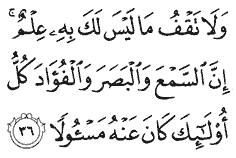 وَلَا نَقْفُ مَا لَيْسَ لَكَ بِهِۦ عِلْمٌ ۚ
إِنَّ ٱلسَّمْعَ وَٱلْبَصَرَ وَٱلْفُؤَادَ كُلُّ
أُو۟لَـٰٓئِكَ كَانَ عَنْهُ مَسْـُٔولًا ٣٦